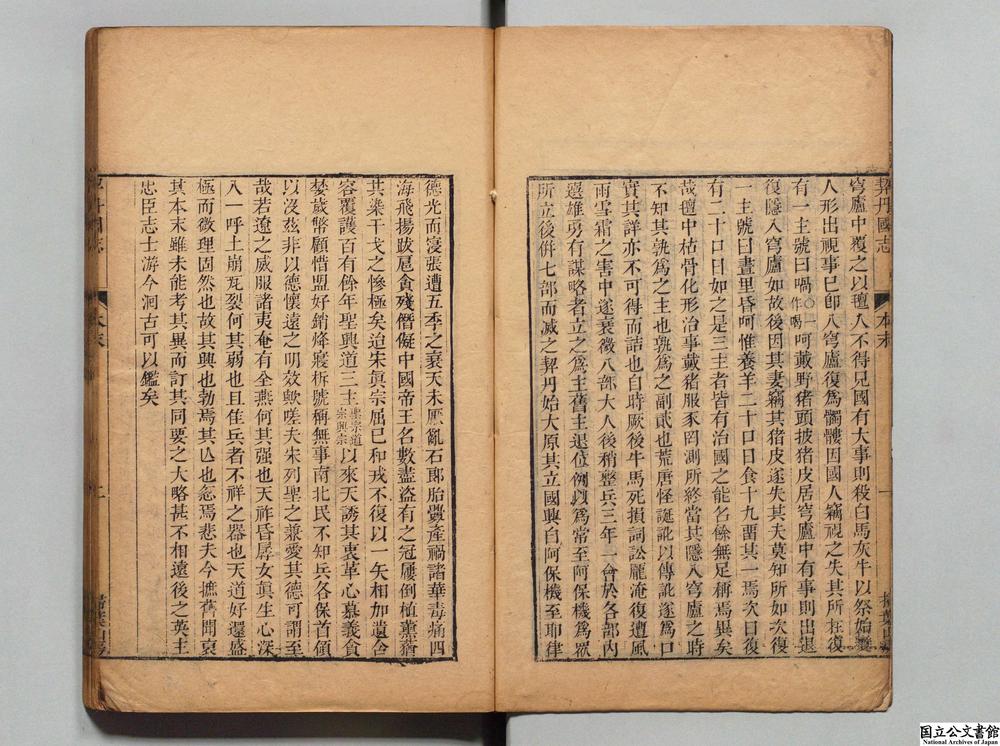 契丹國志
本末
一
掃葉山房
穹廬中覆之以氊人不得見國有大事則殺白馬灰牛以祭始變
人形出視事已卽入穹廬復爲髑髏因國人竊視之失其所在復
有一主號曰喎○一作喝呵戴野猪頭披猪皮居穹廬中有事則出退
復隱入穹廬如故後因其妻竊其猪皮遂失其夫莫知所如次復
一主號曰晝里昏呵惟養羊二十口日食十九畱其一焉次日復
有二十口日如之是三主者皆有治國之能名餘無足稱焉異矣
哉氊中枯骨化形治事戴猪服豕罔測所終當其隱入穹廬之時
不知其孰爲之主也孰爲之副貳也荒唐怪誕訛以傳訛遂爲口
實其詳亦不可得而詰也自時厥後牛馬死損詞訟龎淹復遭風
雨雪霜之害中遂衰微八部大人後稍整兵三年一會於各部內
選雄勇有謀略者立之爲主舊主退位例以爲常至阿保機爲衆
所立後併七部而滅之契丹始大原其立國興自阿保機至耶律
德光而寖張遭五季之衰天未厭亂石郎胎釁產禍諸華毒痡四
海飛揚跋扈貪殘僭儗中國帝王名數盡盜有之冠屨倒植薰蕕
其染干戈之慘極矣迨宋眞宗屈已和戎不復以一矢相加遺含
容覆護百有餘年聖興道三主聖宗道宗興宗以來天誘其衷革心慕義食
婪歲幣顧惜盟好銷烽寢柝號稱無事南北民不知兵各保首領
以沒茲非以德懷遠之明效歟嗟夫宋列聖之兼愛其德可謂至
哉若遼之威服諸夷奄有全燕何其强也天祚昏孱女眞生心深
入一呼土崩瓦裂何其弱也且佳兵者不祥之器也天道好還盛
極而微理固然也故其興也勃焉其亾也忽焉悲夫今摭舊聞裒
其本末雖未能考其異而訂其同要之大略甚不相遠後之英主
忠臣志士游今洞古可以鑑矣
國志
本末
国立公文書館
National Archives of Japan